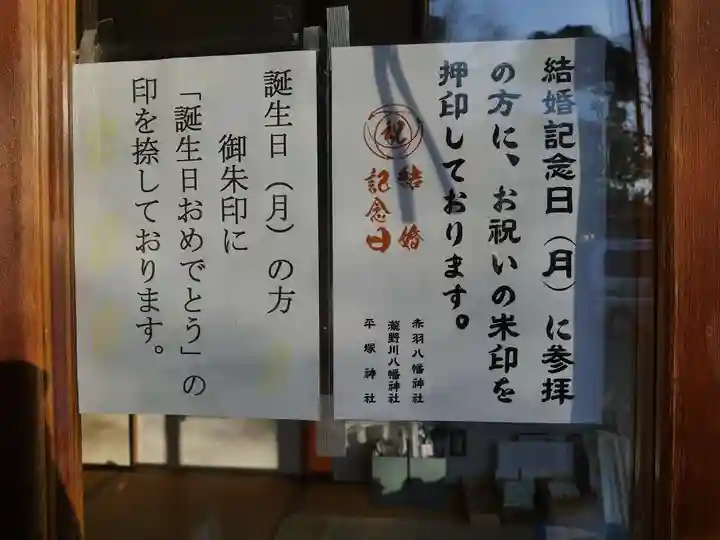 結婚記念日（月）に参拝
の方に、お祝いの朱印を
押印しております。
祝
結婚
記念日
赤羽八幡神社
瀧野川八幡神社
平塚神社
誕生日（月）の方
御朱印に
「誕生日おめでとう」の
印を捺しております。